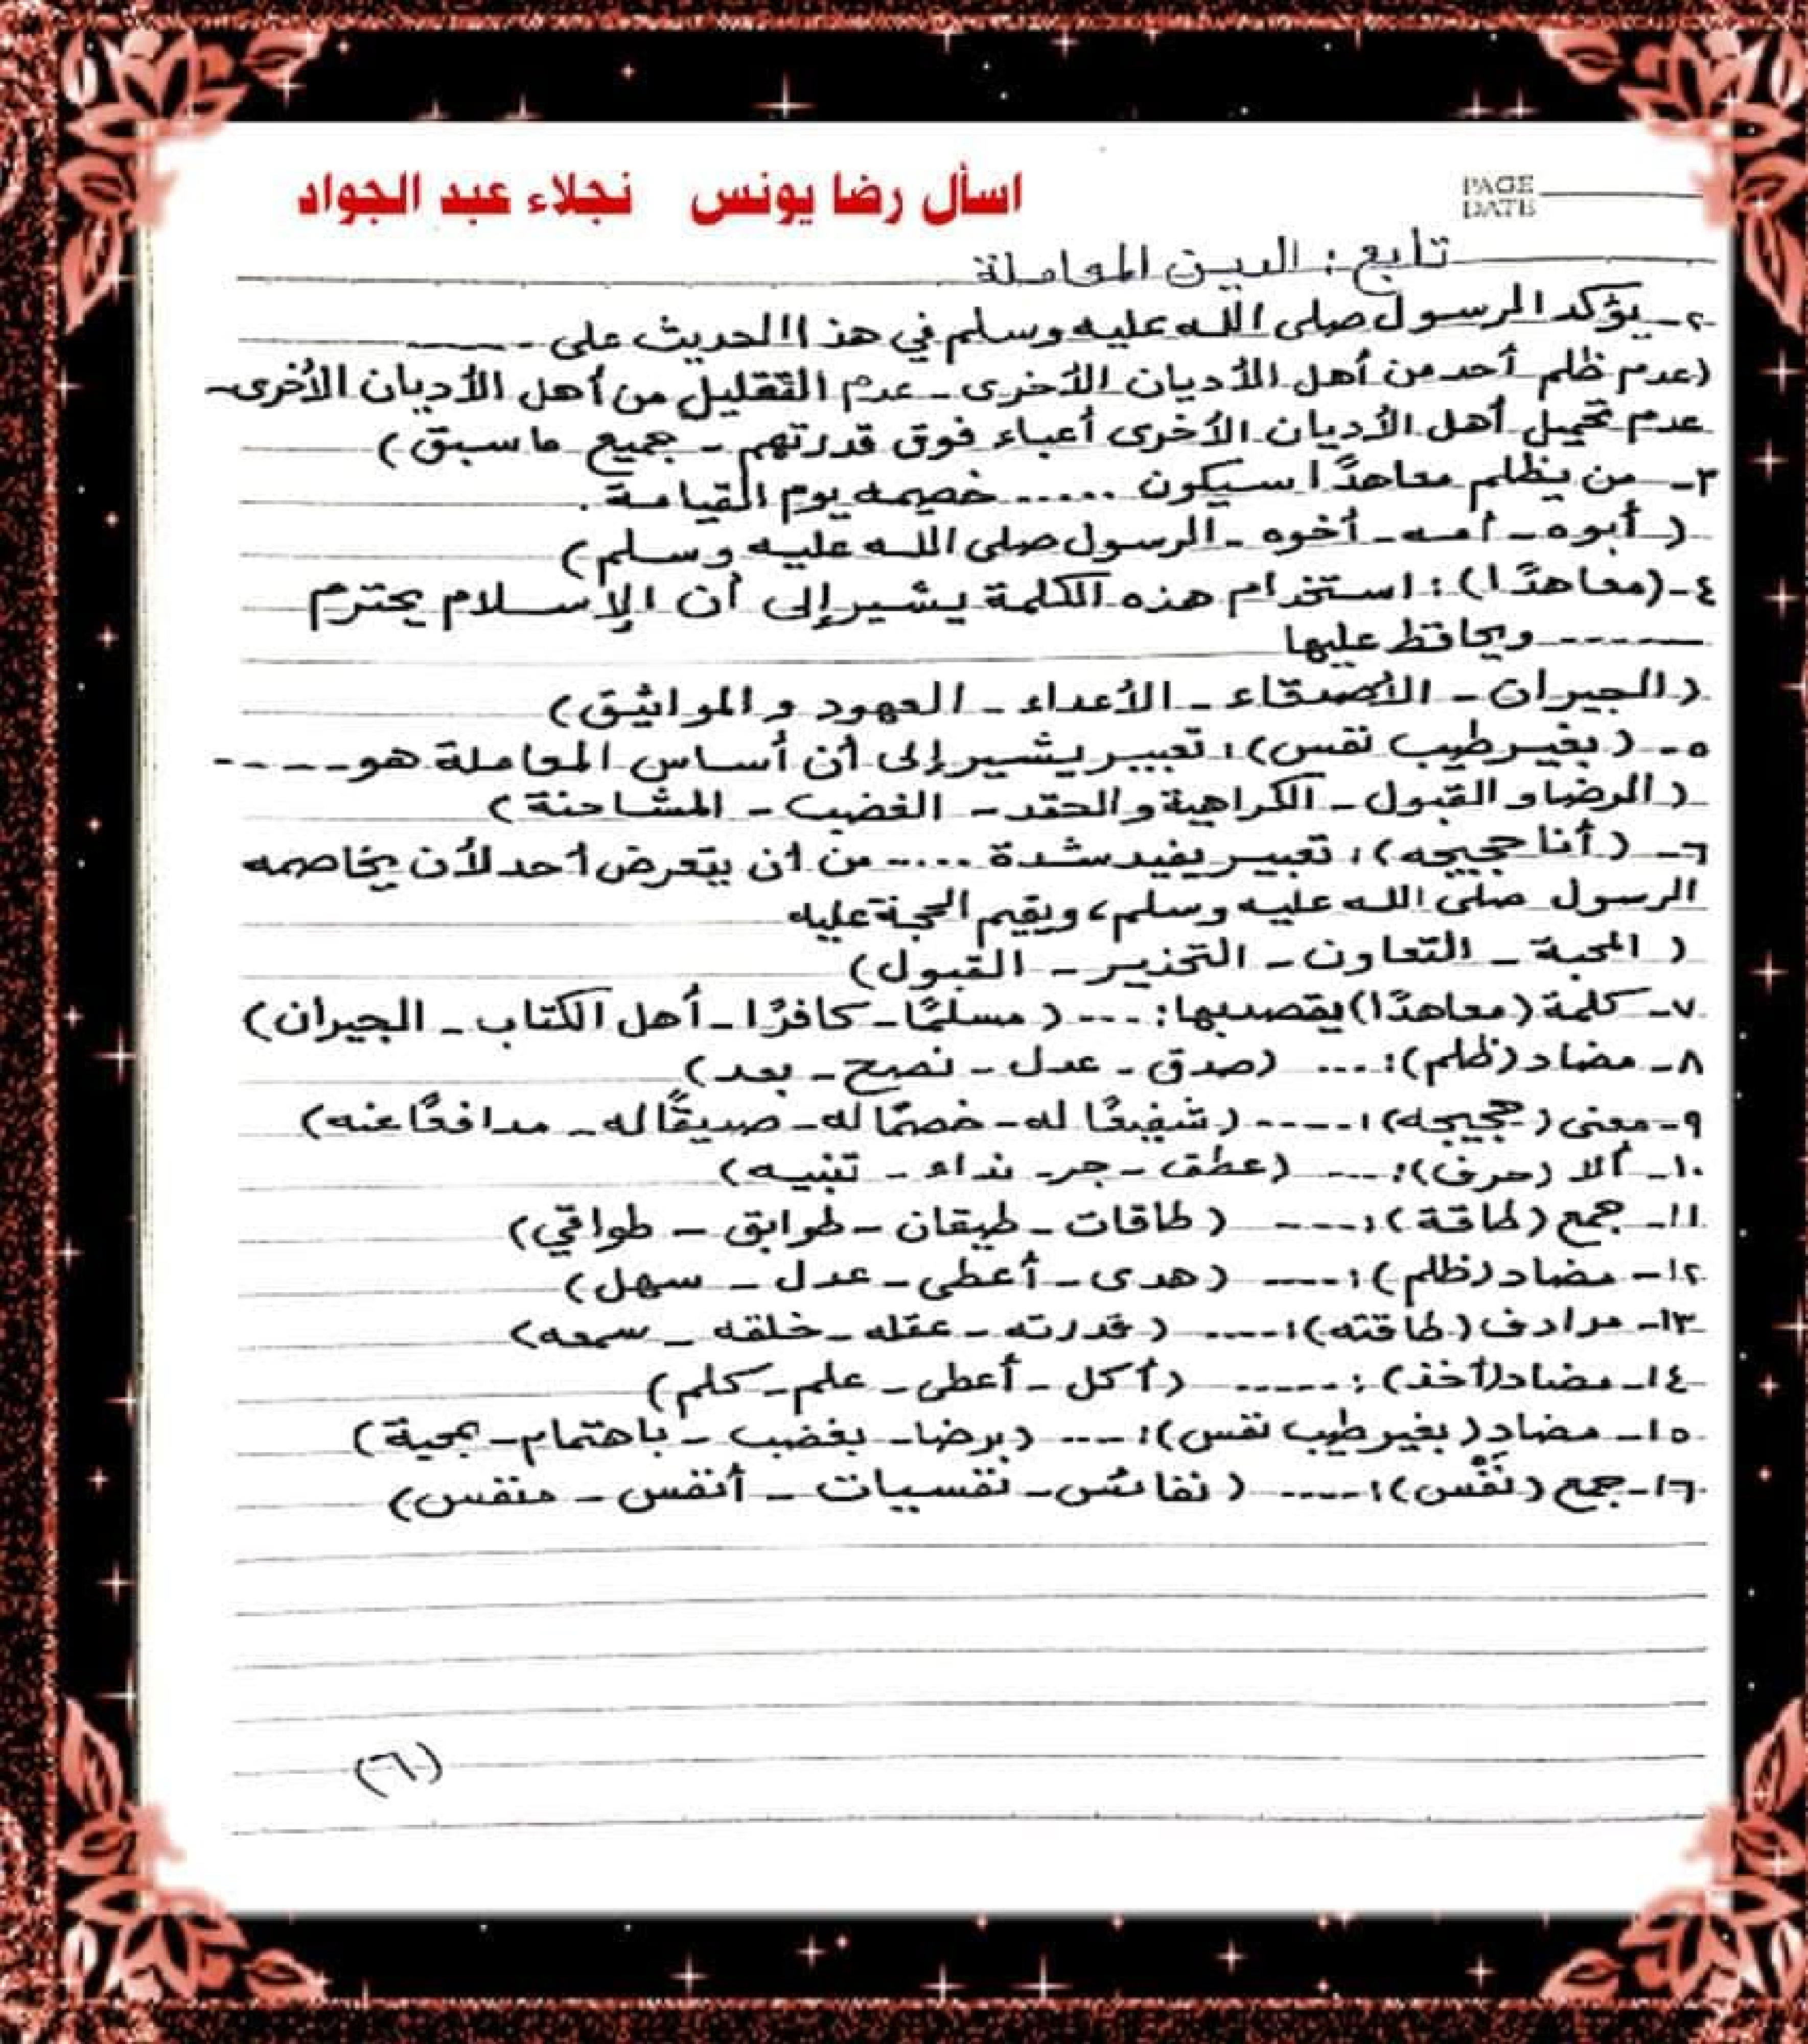 اسأل رضا يونس نجلاء عبد الجواد
PAGE
DATE
تابع : الدين المعاملة
٢- يؤكد الرسول صلى الله عليه وسلم في هذا الحديث على ------
(عدم ظلم أحد من أهل الأديان الأخرى - عدم التقليل من أهل الأديان الأخرى -
عدم تحميل أهل الأديان الأخرى أعباء فوق قدرتهم - جميع ما سبق )
٣- من يظلم معاهدًا سيكون ...... خصيمه يوم القيامة .
( أبوه - أمه - أخوه - الرسول صلى الله عليه وسلم )
٤- (معاهدًا) : استخدام هذه الكلمة يشير إلى أن الإسلام يحترم
------- ويحافظ عليها
( الجيران - الأصدقاء - الأعداء - العهود والمواثيق )
٥- ( بغير طيب نفس ) : تعبير يشير إلى أن أساس المعاملة هو -----
( الرضا و القبول - الكراهية والحقد - الغضب - المشاحنة )
٦- ( أنا حجيجه ) : تعبير يفيد شدة ...... من أن يتعرض أحد لأن يخاصمه
الرسول صلى الله عليه وسلم ، ويقيم الحجة عليه
( المحبة - التعاون - التحذير - القبول )
٧- كلمة (معاهدًا) يقصد بها : ... ( مسلمًا - كافرًا - أهل الكتاب - الجيران )
٨- مضاد (ظلم) : ... (صدق - عدل - نصح - بعد )
٩- معنى ( حجيجه ) : ----- ( شفيعًا له - خصمًا له - صديقًا له - مدافعًا عنه )
١٠- ألا (حرف) : ---- (عطف - جر - نداء - تنبيه )
١١- جمع ( طاقة ) : ---- ( طاقات - طيقان - طوابق - طواقي )
١٢- مضاد (ظلم ) : ---- ( هدى - أعطى - عدل - سهل )
١٣- مرادف ( طاقته ) : ---- ( قدرته - عقله - خلقه - سمعه )
١٤- مضاد (أخذ ) : ------ ( أكل - أعطى - علم - كلم )
١٥- مضاد ( بغير طيب نفس ) : ---- ( برضا - بغضب - باهتمام - بمحبة )
١٦- جمع ( نَفْس ) : ---- ( نفائس - نفسيات - أنفس - منفس )
(٦)